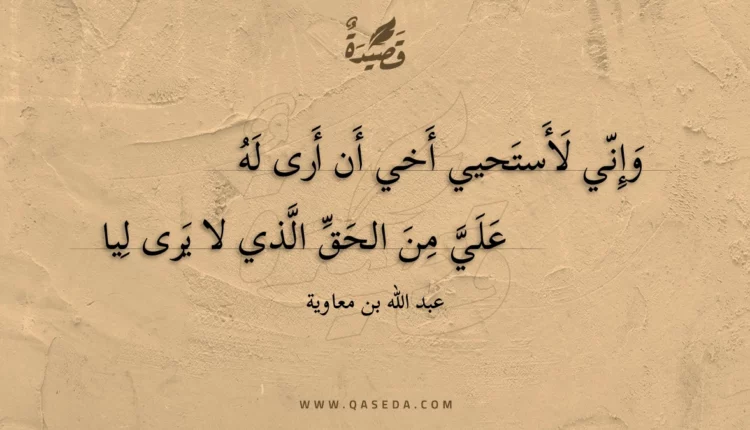 قَصِيدَةٌ
وَإِنّي لَأَستَحيي أَخي أَن أَرى لَهُ
عَلَيَّ مِنَ الحَقِّ الَّذي لا يَرى لِيا
عبد الله بن معاوية
WWW.QASEDA.COM